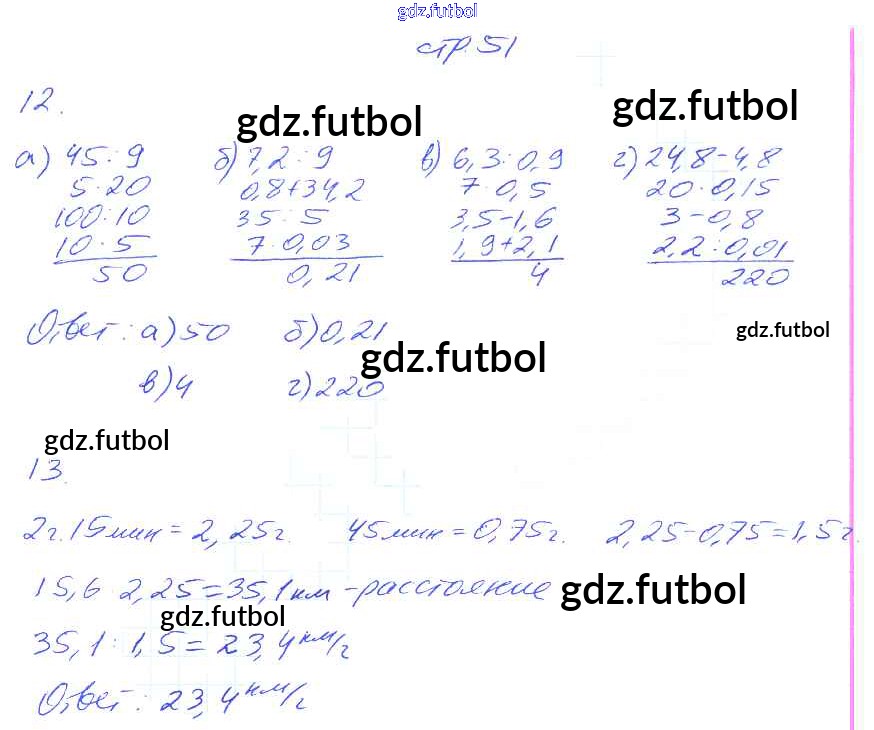 gdz.futbol
стр. 51
12.
gdz.futbol gdz.futbol
а) 45 : 9 б) 7,2 : 9 в) 6,3 : 0,9 г) 24,8 - 4,8
5 · 20 0,8 + 34,2 7 · 0,5 20 · 0,15
100 : 10 35 : 5 3,5 - 1,6 3 - 0,8
10 · 5 7 · 0,03 1,9 + 2,1 2,2 : 0,01
50 0,21 4 220
Ответ: а) 50 б) 0,21
gdz.futbol
gdz.futbol
в) 4 г) 220
gdz.futbol
13.
2 г. 15 мин = 2,25 г. 45 мин = 0,75 г. 2,25 - 0,75 = 1,5 г.
15,6 2,25 = 35,1 км - расстояние
gdz.futbol
gdz.futbol
35,1 : 1,5 = 23,4 км/г
Ответ: 23,4 км/г